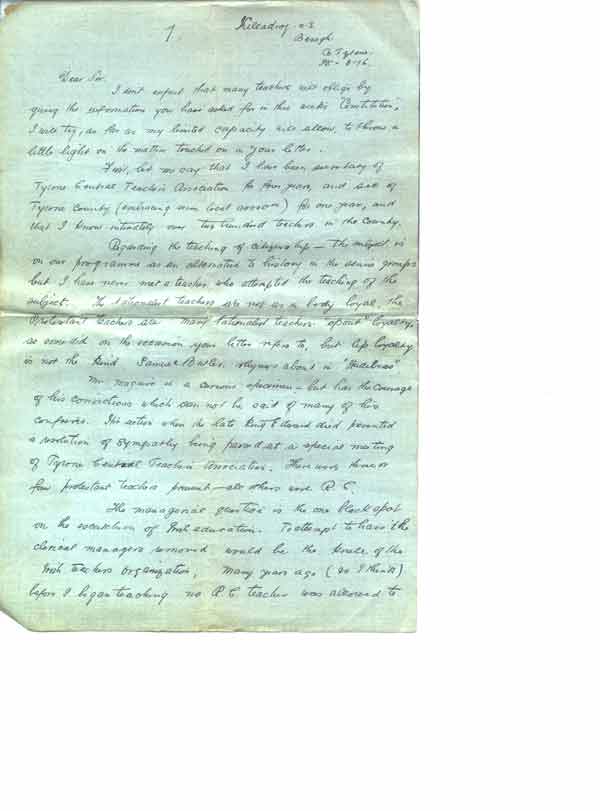 1.
Killadroy N.S.
Beragh
Co Tyrone
-8-16.
Dear Sir.
I don't expect that many teachers will oblige by
giving the information you have asked for in this week's "Constitution".
I will try, as far as my limited capacity will allow, to throw a
little light on the matters touched on in your letter.
First, let me say that I have been secretary of
Tyrone Central Teachers Association for four years, and sec of
Tyrone County (embracing seven local assocns) for one year, and
that I know intimately over two hundred teachers in the County.
Regarding the teaching of citizenship — this subject is
on our programme as an alternative to history in the senior groups
but I have never met a teacher who attempted the teaching of the
subject. The Nationalist teachers are not as a body loyal, the
Protestant teachers are. Many Nationalist teachers "spout" loyalty,
as on the occasion your letter refers to, but lip loyalty
is not the kind Samuel Butler rhymes about in "Hudibras"
Mr Maguire is a curious specimen — but has the courage
of his convictions which can not be said of many of his
confreres. His action when the late King Edward died prevented
a resolution of sympathy being passed at a special meeting
of Tyrone Central Teachers Association. There were three or
four protestant teachers present — all others were R.C.
The managerial question is the one black spot
on the escutcheon of Irish education. To attempt to have the
clerical managers removed would be the death of the
Irish teachers organization. Many years ago (20 I think)
before I began teaching no R.C. teacher was allowed to